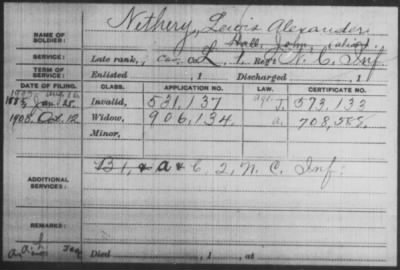 NAME OF SOLDIER: Nethery, Lewis Alexander
Hall, John, alias.
SERVICE: Late rank, Co. L, 1, Reg't N. C. Inf.
TERM OF SERVICE: Enlisted , 1 Discharged , 1
DATE OF FILING. CLASS. APPLICATION NO. LAW. CERTIFICATE NO.
1885 Jan. 28. Invalid, 531,137 J. 573,133
1908, Oct. 12 Widow, 906,134. a. 708,585.
Minor,
ADDITIONAL SERVICES: B 1, & a & C 2, N. C. Inf.
REMARKS:
Died , 1 , at